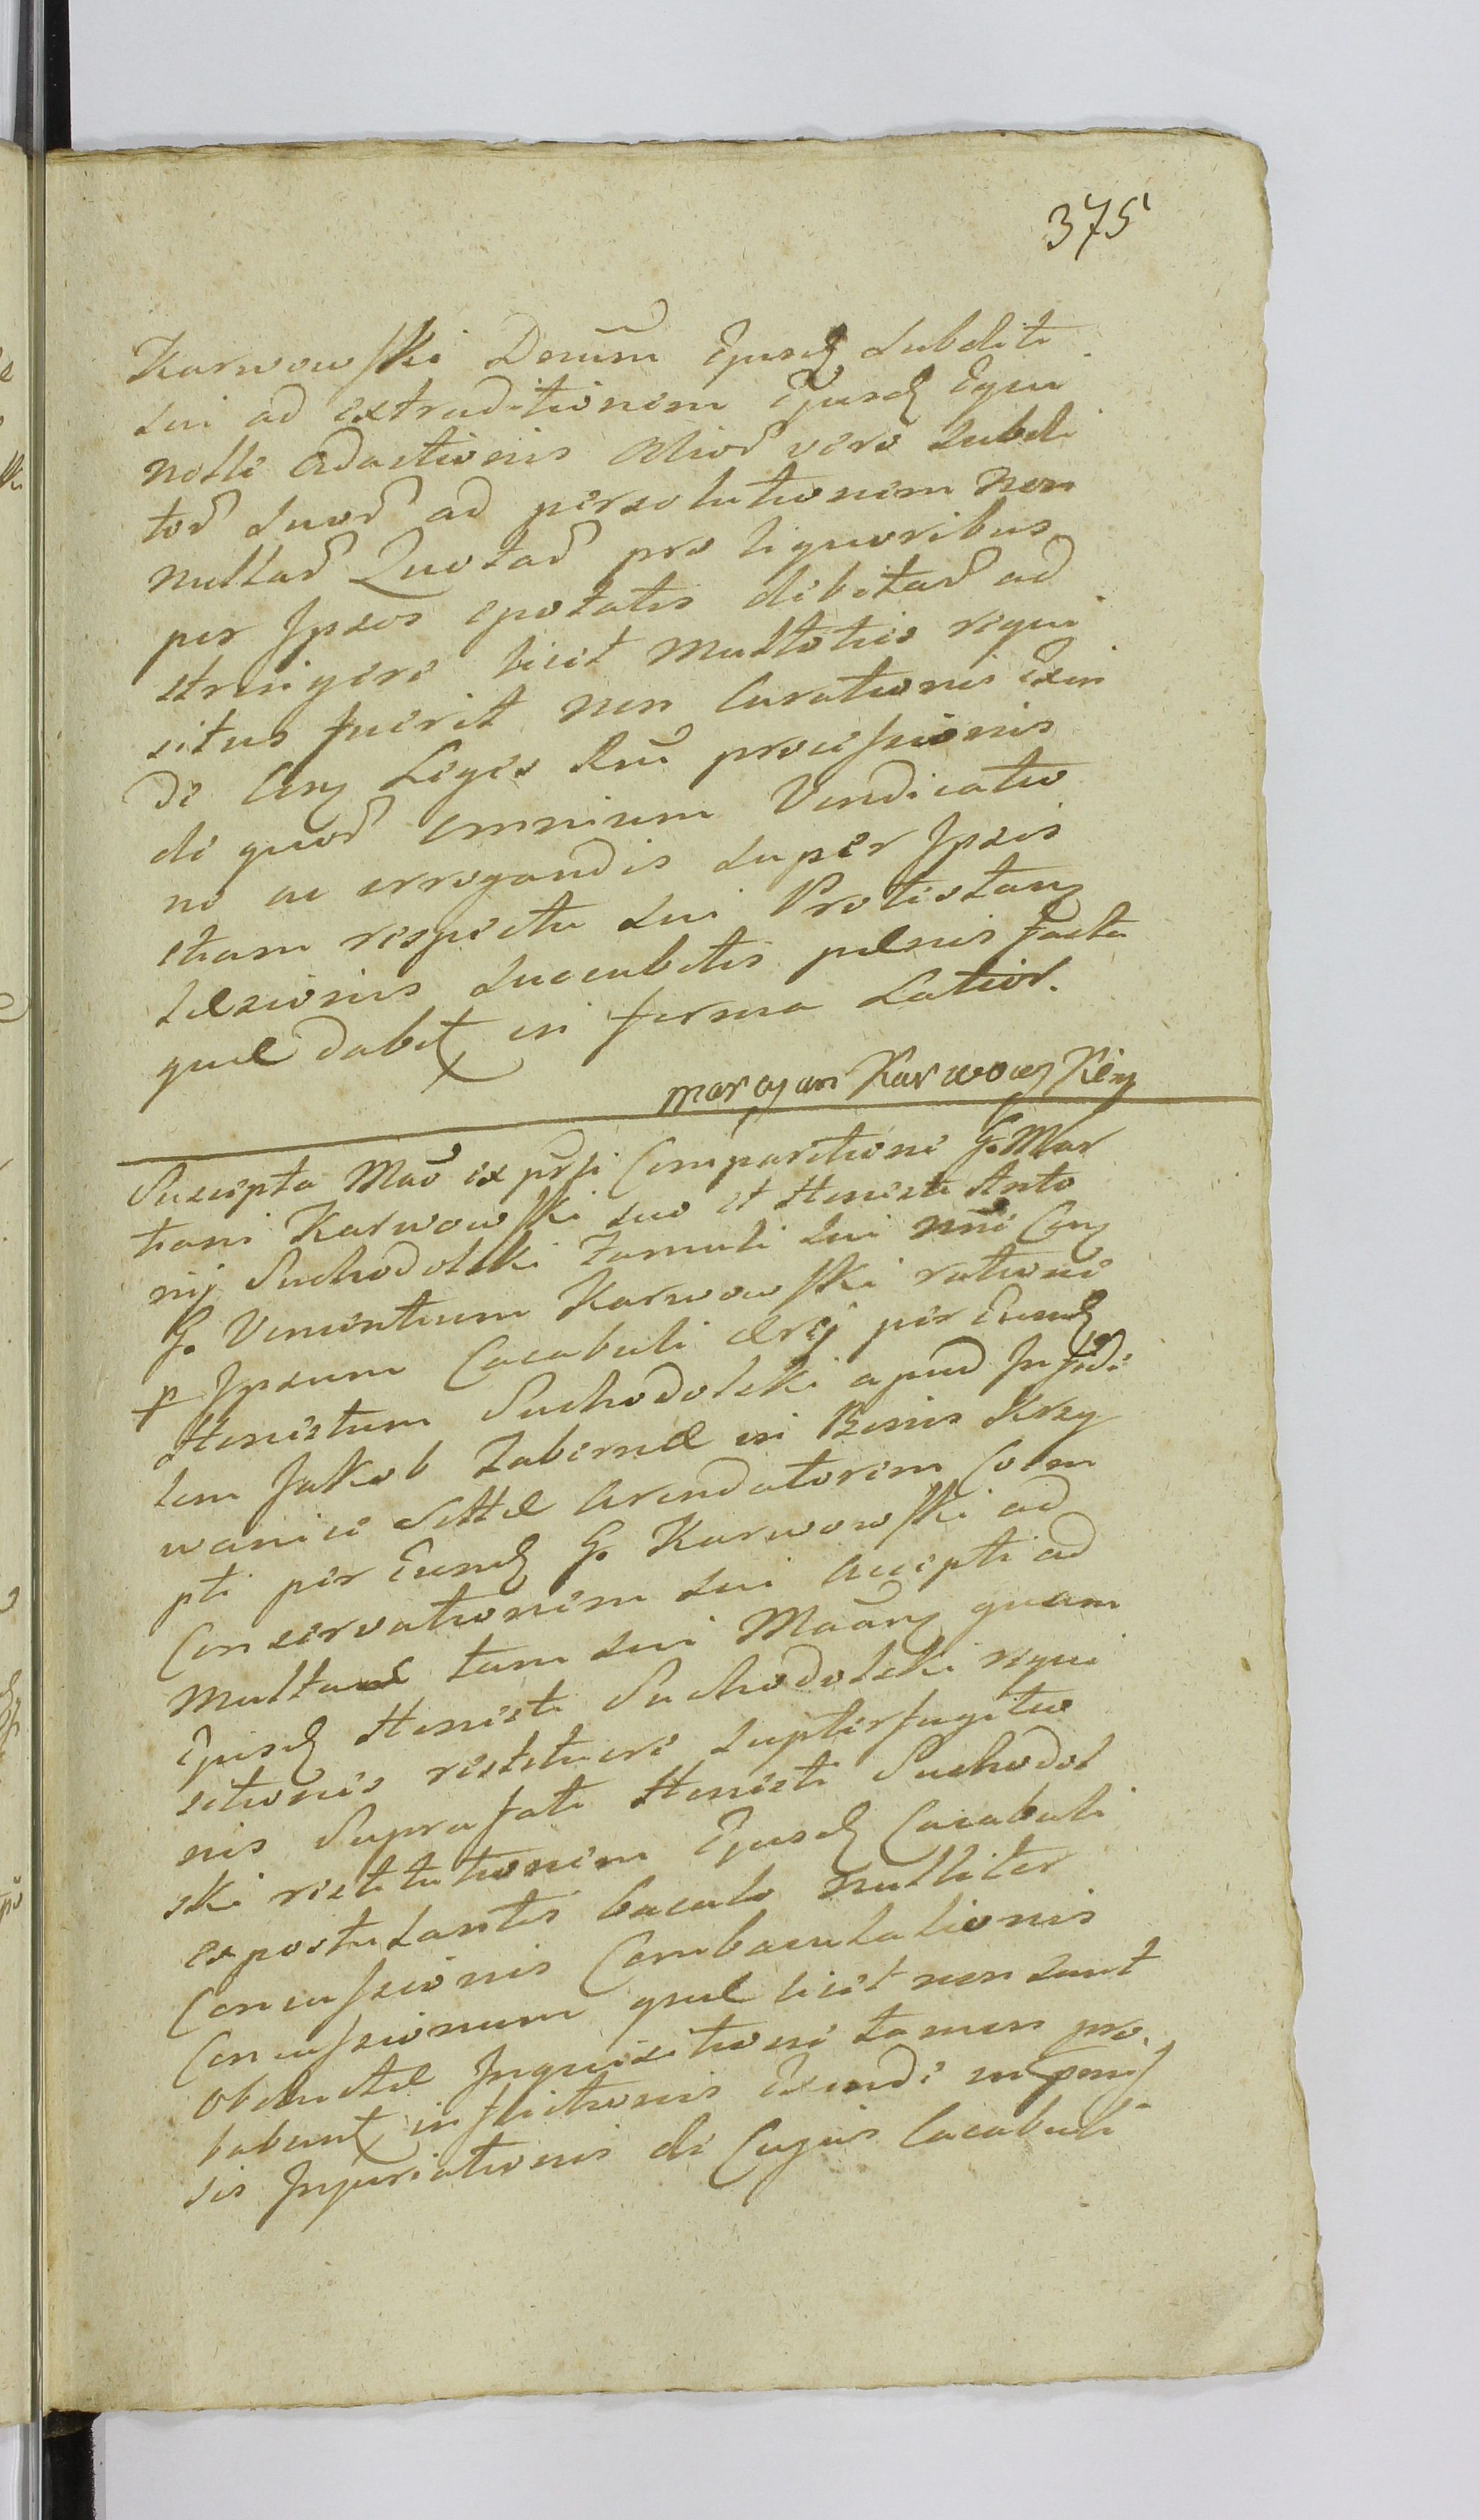 375
Karwowski Demum Ejusd Subditi
Sui ad extraditionem Ejusd Equi
nolle Adactionis Alior vero Subdi
tor Suor ad persolutionem non
nullar Quotar pro liquoribus
per Ipsos epotatis debitar ad
stringere licet multoties requi
situs fuerit non Curationis exin
de Conq Leges Rni processionis
de quor omnium Vindicatio
ne ac irrogandis super Ipsis
etiam respectu sui Protestanq
læsionis Succubitis pænis facta
quæ dabit in forma Latior.
maryan Karwowsky
Suscepta Mao ex prsi Comparitione G. Mar
iani Karwowski suo et Honesti Anto
nij Suchodolski famuli sui nne Conq
G. Vincentium Karwowski ratione
p Ipsum Cacabuli ærej per Eund
Honestum Suchodolski apud Infide
lem Jakob Tabernæ in Bonis Krzy
wanice Sittæ Arendatorem Coëm
pti per Eund G. Karwowski ad
Conservationem sui accepti ad
multas tam sui Maanq quam
Ejusd Honesti Suchodolski requi
sitiones restituere supterfugitio
nis Suprafati Honesti Suchodol
ski restitutionem Ejusd Cacabuli
expostulantis baculo nulliter
Concussionis Combaculationis
Concussionum quæ licet non sunt
obductæ Inquisitione tamen pro
babunt inflictionis Exinde
sis Injuriationis de Cujus Cacabuli